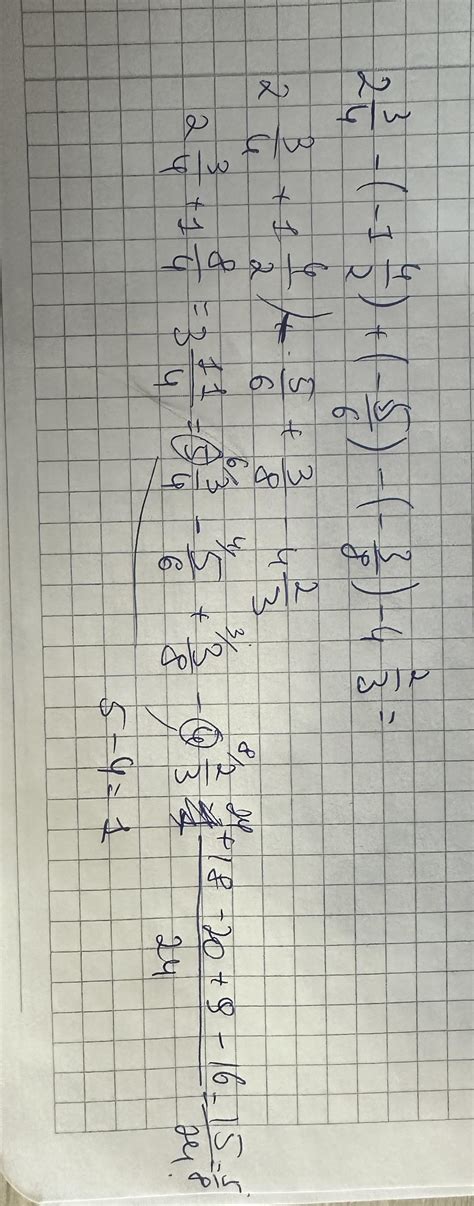 2 3/4 - (-1 4/2) + (-5/6) - (-3/8) - 4 2/3 =
2 3/4 + 1 4/2) - 5/6 + 3/8 - 4 2/3
2 3/4 + 1 8/4 = 3 11/4 = 5 6/3/4 - 4/5/6 + 3/3/8 - 4 8/2/3 (24+18-20+9-16)/24 = 15/24 = 5/8.
5-4=1